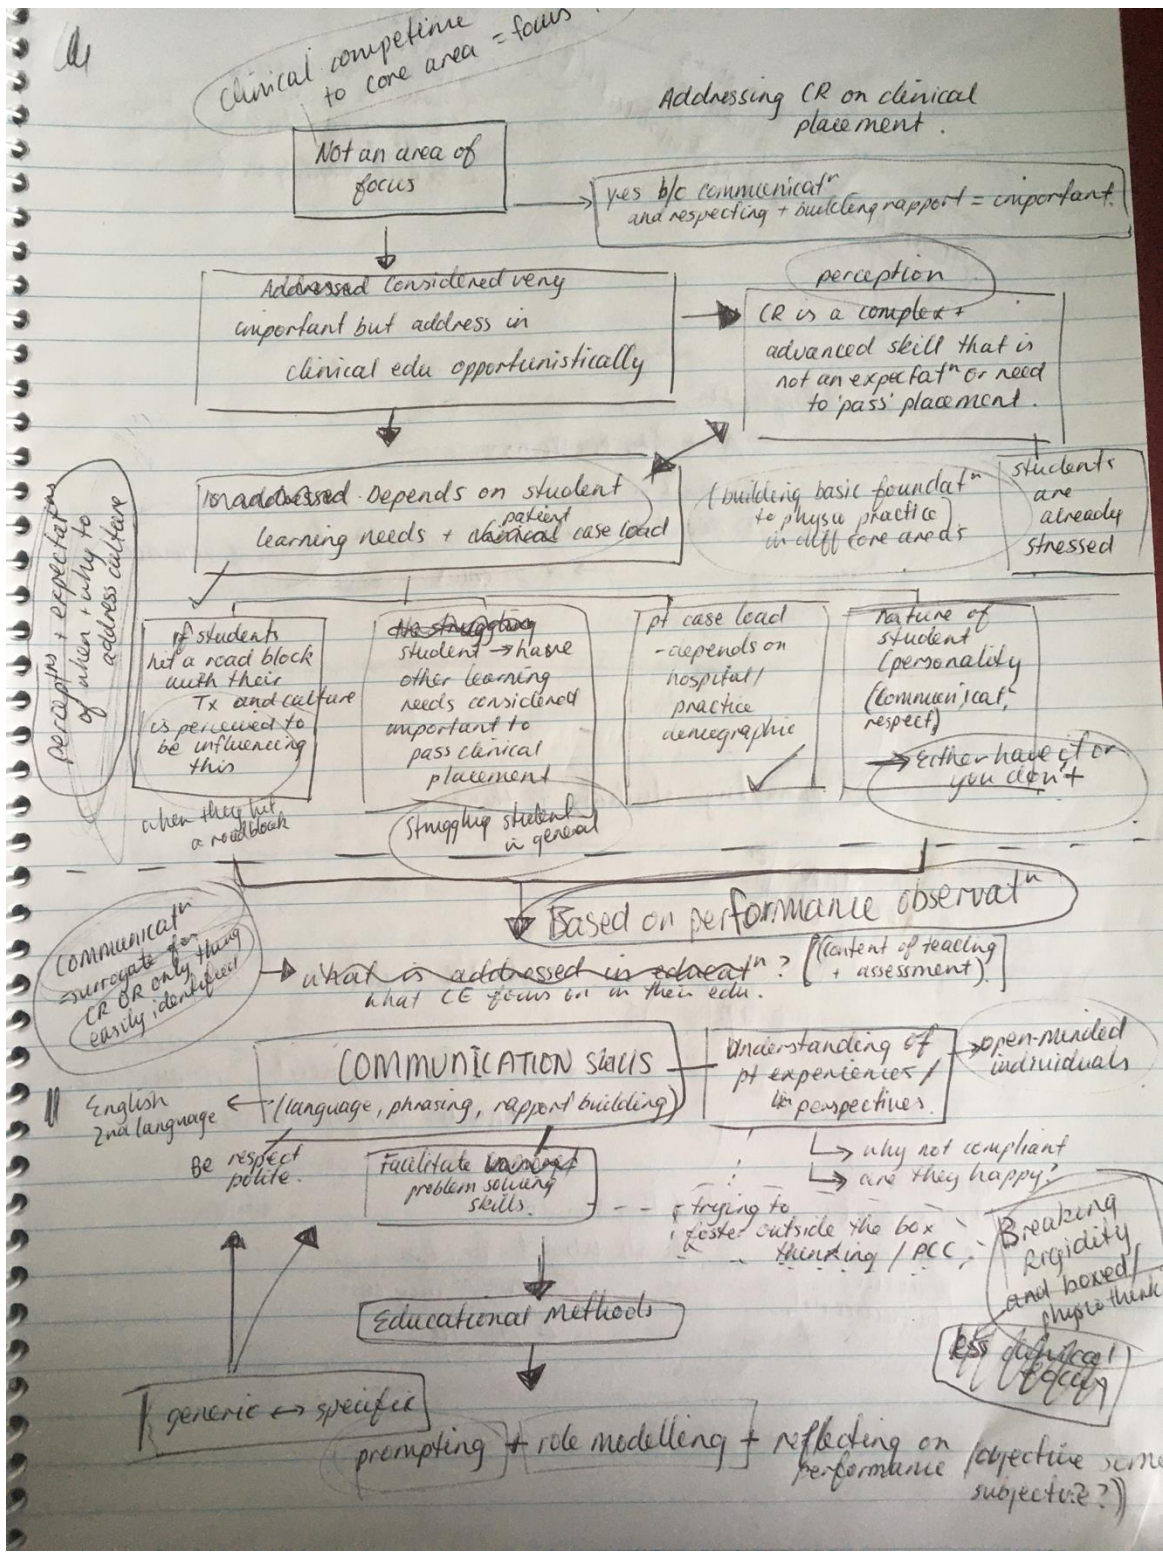 clinical competime
to core area = focus.
Addressing CR on clinical
placement.
Not an area of
focus
yes b/c communicatⁿ
and respecting + building rapport = important.
Addressed Considered very
important but address in
clinical edu opportunistically
perception
CR is a complex +
advanced skill that is
not an expectatⁿ or need
to 'pass' placement.
perceptⁿs + expectatⁿs
of when + why to
address culture
Depends on student
patient
learning needs + clinical case load
(building basic foundatⁿ
to physio practice
in diff core areas
students
are
already
stressed
if students
hit a road block
with their
Tx and culture
is perceived to
be influencing
this
when they hit
a roadblock
No struggling
student → have
other learning
needs considered
important to
pass clinical
placement
struggling student
in general
pt case load
- depends on
hospital/
practice
demographic
nature of
student
(personality
(communicatⁿ,
respect)
→ Either have it or
you don't
Based on performance observatⁿ
communicatⁿ
= surrogate for
CR OR only thing
easily identified
what is addressed in educatⁿ?
[(content of teaching
+ assessment)]
what CE focus on in their edu.
COMMUNICATION SKILLS
(language, phrasing, rapport building)
English
2nd language
Be respect
polite.
Understanding of
pt experiences/
perspectives.
open-minded
individuals
why not compliant
are they happy?
Facilitate
problem solving
skills.
trying to
foster outside the box
thinking / PCC
Breaking
Rigidity
and boxed/
physio think
Educational Methods
less clinical
generic ↔ specific
prompting + role modelling + reflecting on
performance (objective some
subjective?))